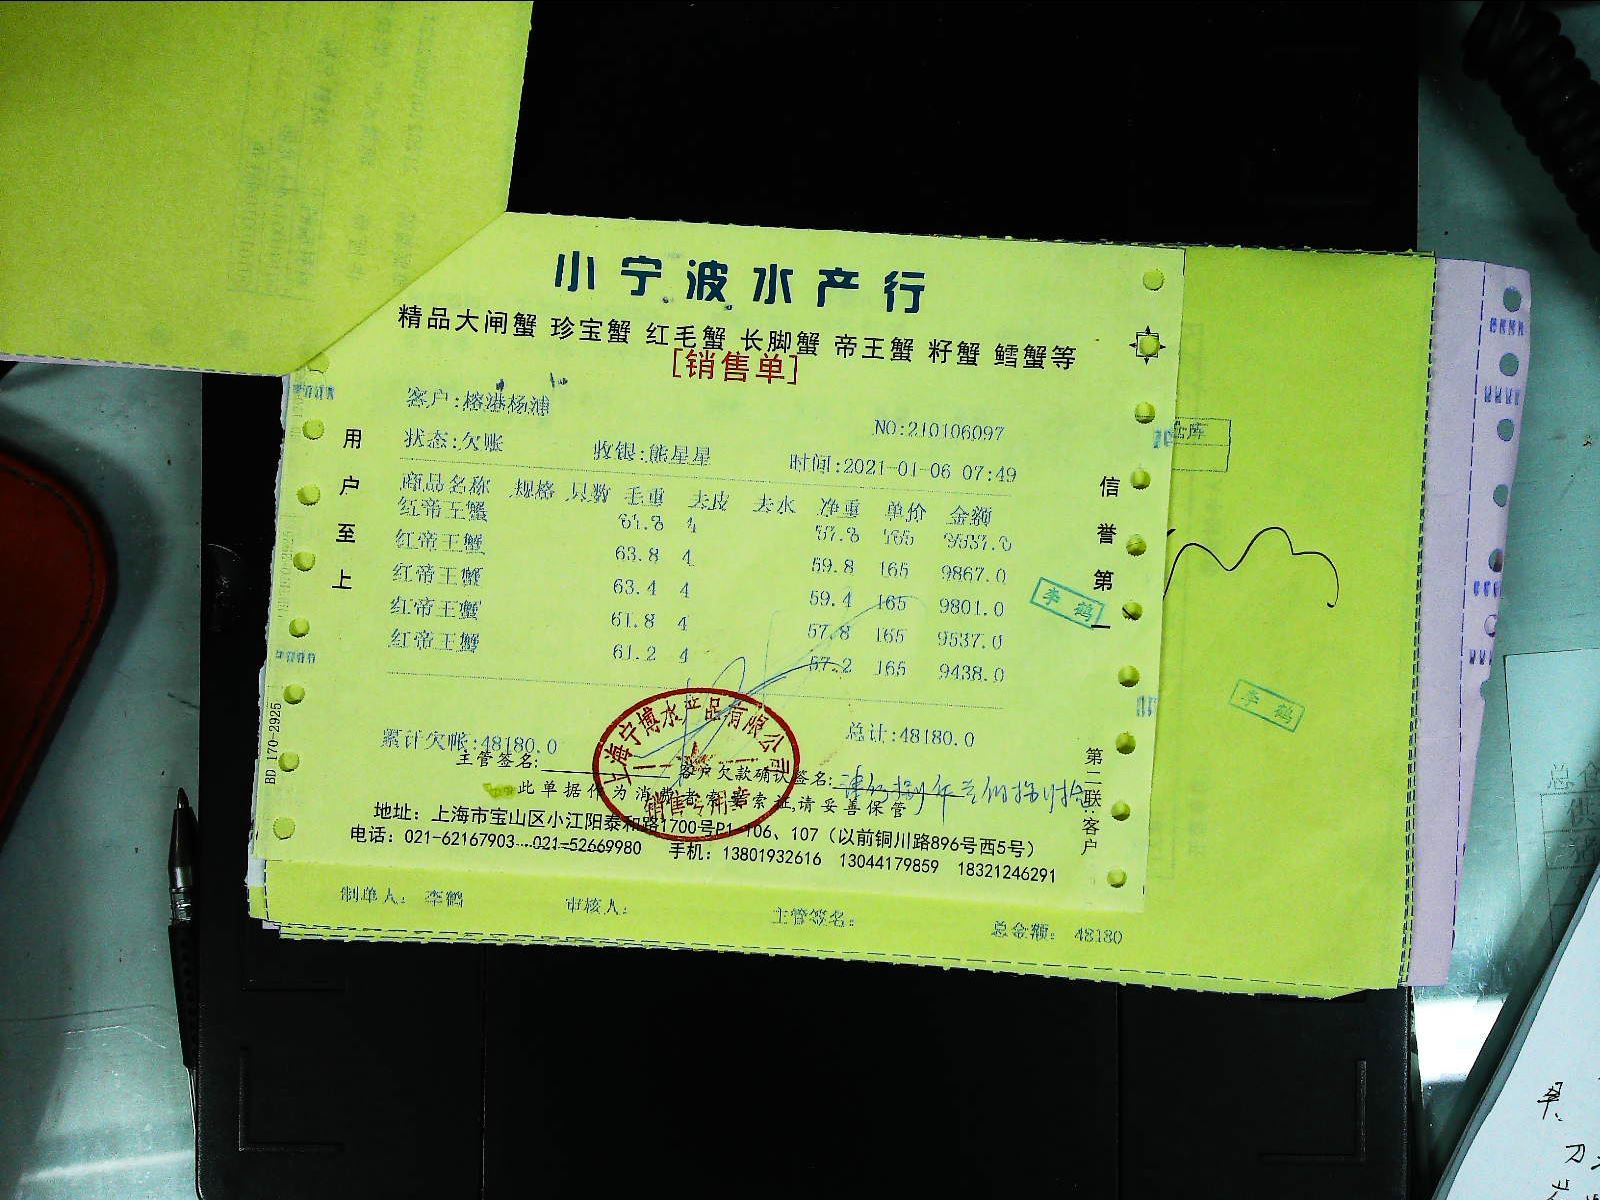 小宁波水产行
精品大闸蟹 珍宝蟹 红毛蟹 长脚蟹 帝王蟹 籽蟹 鳕蟹等
[销售单]
客户:榕港杨浦
NO:210106097
状态:欠账 收银:熊星星 时间:2021-01-06 07:49
商品名称 规格 只数 毛重 去皮 去水 净重 单价 金额
红帝王蟹 61.8 4 57.8 165 9537.0
红帝王蟹 63.8 4 59.8 165 9867.0
红帝王蟹 63.4 4 59.4 165 9801.0
红帝王蟹 61.8 4 57.8 165 9537.0
红帝王蟹 61.2 4 57.2 165 9438.0
累计欠帐:48180.0 总计:48180.0
主管签名: 客户欠款确认签名:
此单据作为消费者索要索证,请妥善保管
地址: 上海市宝山区小江阳泰和路1700号P1-106、107（以前铜川路896号西5号）
电话: 021-62167903 021-52669980 手机: 13801932616 13044179859 18321246291
用户至上
信誉第一
第二联:客户
BD 170-2925
上海宁博水产品有限公司
销售专用章
李鹤
仓库
李鹤
制单人: 李鹤 审核人: 主管签名: 总金额: 48180